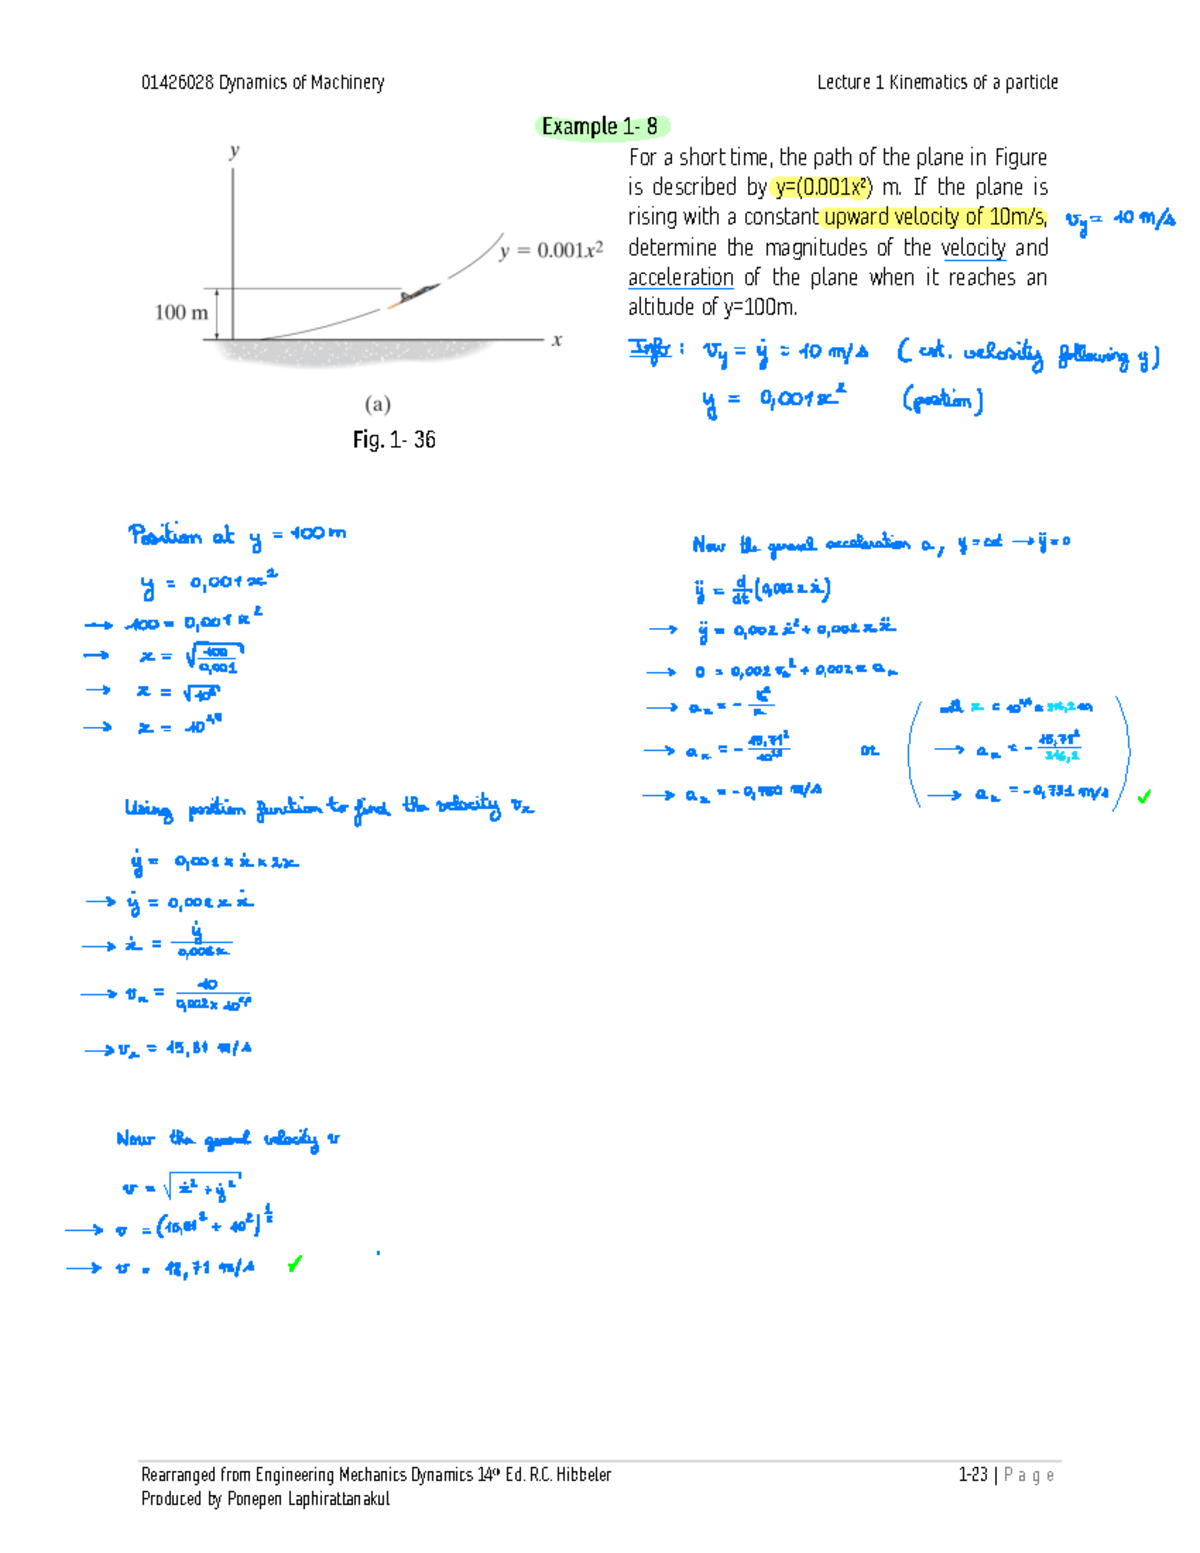 01426028 Dynamics of Machinery
Lecture 1 Kinematics of a particle
Example 1- 8
y
y = 0.001x²
100 m
x
(a)
Fig. 1- 36
For a short time, the path of the plane in Figure
is described by y=(0.001x²) m. If the plane is
rising with a constant upward velocity of 10m/s,
determine the magnitudes of the velocity and
acceleration of the plane when it reaches an
altitude of y=100m.
v_y = 10 m/s
Info : v_y = ẏ = 10 m/s (cst. velosity following y)
y = 0,001x² (position)
Position at y = 100 m
y = 0,001x²
→ 100 = 0,001x²
→ x = √(100/0,001)
→ x = √10⁵
→ x = 10^2,5
Using position function to find the velocity v_x
ẏ = 0,001 × ẋ × 2x
→ ẏ = 0,002 x ẋ
→ ẋ = ẏ/0,002x
→ v_x = 10/(0,002 × 10^2,5)
→ v_x = 15,81 m/s
Now the general velocity v
v = √(ẋ² + ẏ²)
→ v = (15,81² + 10²)^½
→ v = 18,71 m/s ✓
Now the general acceleration a, ẏ = cst → ÿ = 0
ÿ = d/dt (0,002 x ẋ)
→ ÿ = 0,002 ẋ² + 0,002 x ẍ
→ 0 = 0,002 v_x² + 0,002 x a_x
→ a_x = - v_x²/x
→ a_x = - 15,71²/10^2,5 or
→ a_x = - 0,780 m/s
with x = 10^2,5 = 316,2 m
→ a_x = - 15,71²/316,2
→ a_x = - 0,791 m/s ✓
Rearranged from Engineering Mechanics Dynamics 14th Ed. R.C. Hibbeler
Produced by Ponepen Laphirattanakul
1-23 | P a g e